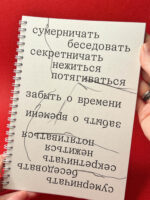 сумерничать
беседовать
секретничать
нежиться
потягиваться
забыть о времени
забыть о времени
потягиваться
нежиться
секретничать
беседовать
сумерничать